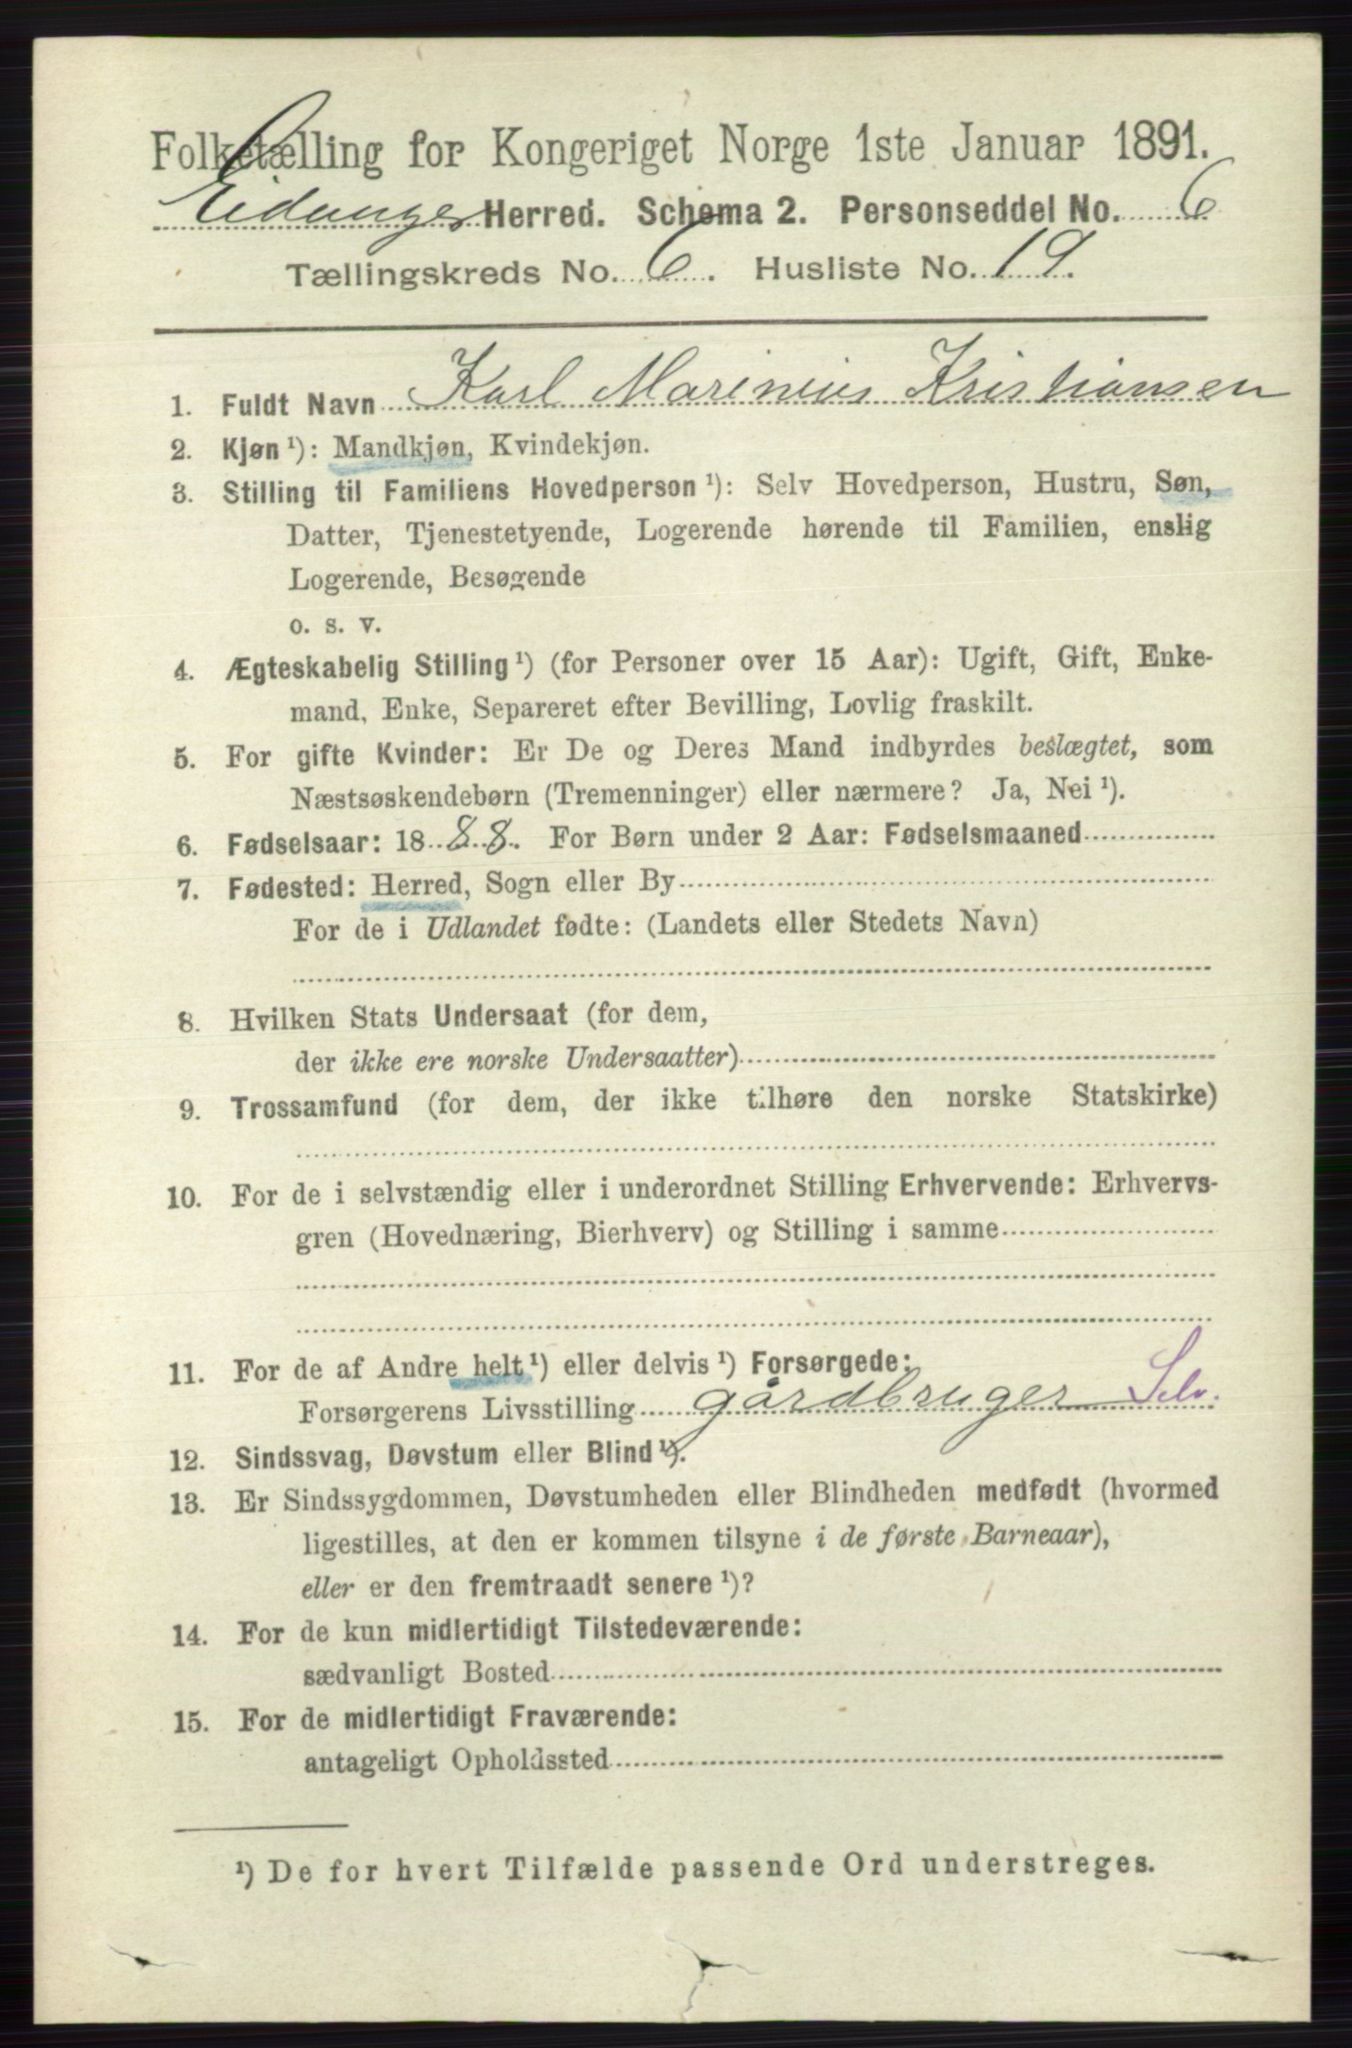 Folketælling for Kongeriget Norge 1ste Januar 1891.
Eidanger Herred. Schema 2. Personseddel No. 6
Tællingskreds No. 6. Husliste No. 19.
1. Fuldt Navn Karl Marinius Kristiansen
2. Kjøn ¹): Mandkjøn, Kvindekjøn.
3. Stilling til Familiens Hovedperson ¹): Selv Hovedperson, Hustru, Søn,
Datter, Tjenestetyende, Logerende hørende til Familien, enslig
Logerende, Besøgende
o. s. v.
4. Ægteskabelig Stilling ¹) (for Personer over 15 Aar): Ugift, Gift, Enke-
mand, Enke, Separeret efter Bevilling, Lovlig fraskilt.
5. For gifte Kvinder: Er De og Deres Mand indbyrdes beslægtet, som
Næstsøskendebørn (Tremenninger) eller nærmere? Ja, Nei ¹).
6. Fødselsaar: 1888. For Børn under 2 Aar: Fødselsmaaned
7. Fødested: Herred, Sogn eller By
For de i Udlandet fødte: (Landets eller Stedets Navn)
8. Hvilken Stats Undersaat (for dem,
der ikke ere norske Undersaatter)
9. Trossamfund (for dem, der ikke tilhøre den norske Statskirke)
10. For de i selvstændig eller i underordnet Stilling Erhvervende: Erhvervs-
gren (Hovednæring, Bierhverv) og Stilling i samme
11. For de af Andre helt ¹) eller delvis ¹) Forsørgede:
Forsørgerens Livsstilling gårdbruger Selv.
12. Sindssvag, Døvstum eller Blind ¹).
13. Er Sindssygdommen, Døvstumheden eller Blindheden medfødt (hvormed
ligestilles, at den er kommen tilsyne i de første Barneaar),
eller er den fremtraadt senere ¹)?
14. For de kun midlertidigt Tilstedeværende:
sædvanligt Bosted
15. For de midlertidigt Fraværende:
antageligt Opholdssted
¹) De for hvert Tilfælde passende Ord understreges.